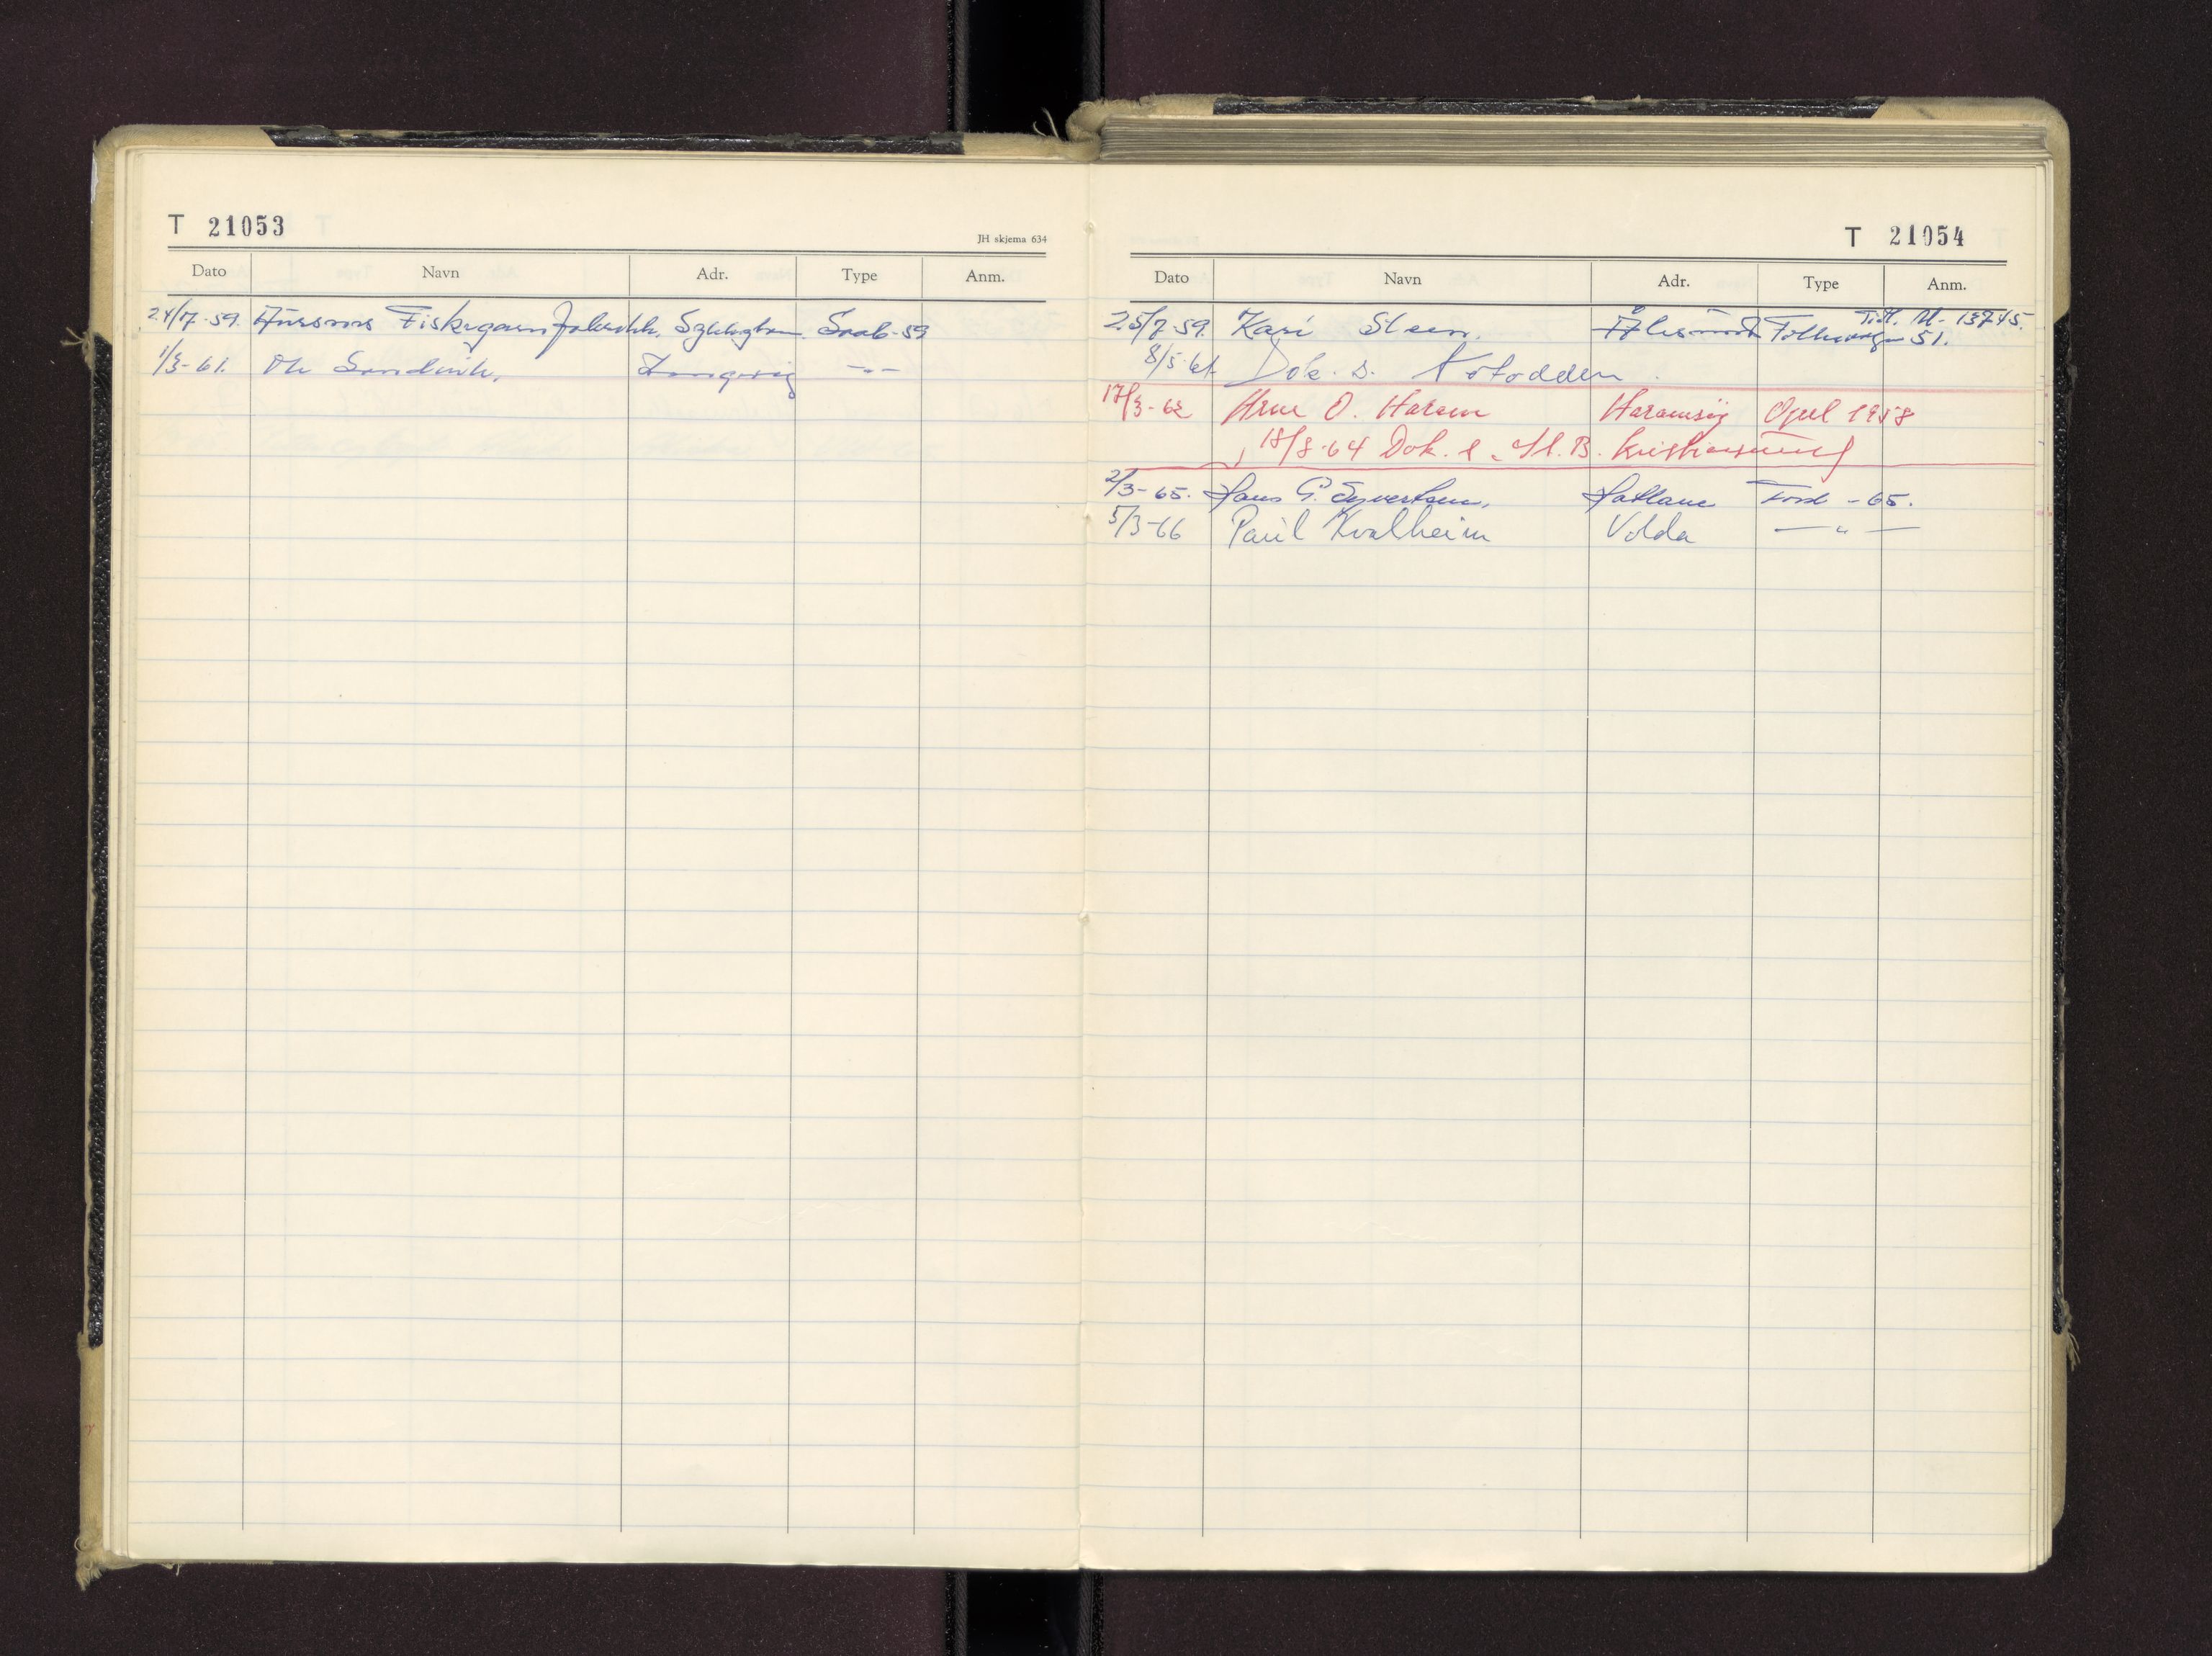 T 21053
JH skjema 634
Dato Navn Adr. Type Anm.
24/7-59. Fiskegarnfabrikk, Sykkylven. Saab-59
1/3-61. Ole Sandvik, Langevåg -"-
T 21054
Dato Navn Adr. Type Anm.
25/7-59. Kari Steen. Ålesund Folkevogn 51. Tidl. A-13745.
8/5-61. Dok. s. Notodden.
17/3-62 Arne O. Haram Haramsöy Opel 1958
18/8-64 Dok. s. St. B. Kristiansund
2/3-65. Hans G. Syvertsen, Hatlane Ford -65.
5/3-66 Paul Kvalheim Volda —"—